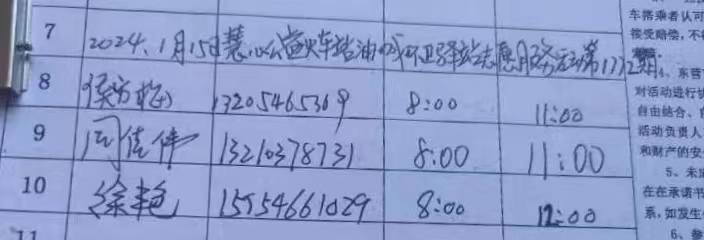 7 2024.1月15日慧心公益火车站油城环卫驿站志愿服务活动第1772期
8 13205465369 8:00 11:00
9 周佳伟 13210378731 8:00 11:00
10 徐艳 15554661029 8:00 12:00
11
车搭乘者认可
接受赔偿,不
4、东营
对活动进行协
自由结合、自
活动负责人
和财产的安
5、未成
在在承诺书
系,如发生
6、参